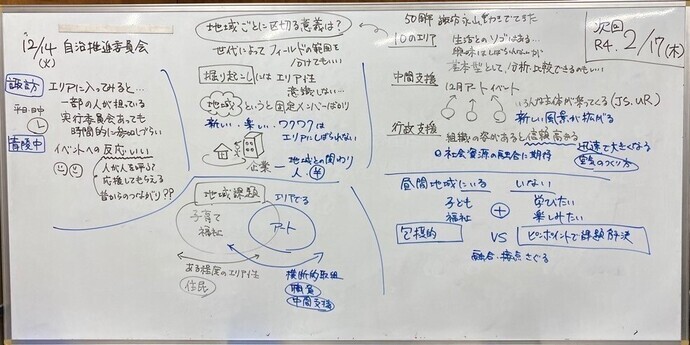 12/14 自治推進委員会
(火)
諏訪
エリアに入ってみると…
一部の人が担っている
実行委員会あっても
時間的に参加しづらい
平日・日中
青陵中
イベントへの反応いい
人が人を呼ぶ
応援してもらえる
昔からのつながり??
地域ごとに区切る意義は?
世代によってフィールドの範囲を
分けてもいい
掘り起こしにはエリア性
意識しない…
地域 というと固定メンバーばかり
新しい・楽しい・ワクワクは
エリアにしばられない
企業 — 地域との関わり
人、¥
地域課題
エリアでる
子育て
福祉
アート
ある程度のエリア性
住民
横断的取組
職員
中間支援
50周年
10のエリア
生活とのソゴはある…
基本型として分析・比較できるのもいい
中間支援
12月アートイベント
いろんな主体が乗ってくる (JS.UR)
新しい風景が拡がる
行政支援
組織の名があると信頼高まる
迅速で大きくなる
◎社会資源の融合に期待
空気のつくり方
昼間地域にいる
いない
子ども
福祉
+
学びたい
楽しみたい
包括的
VS
ピンポイントで課題解決
融合・接点さぐる
次回
R4. 2/17(木)